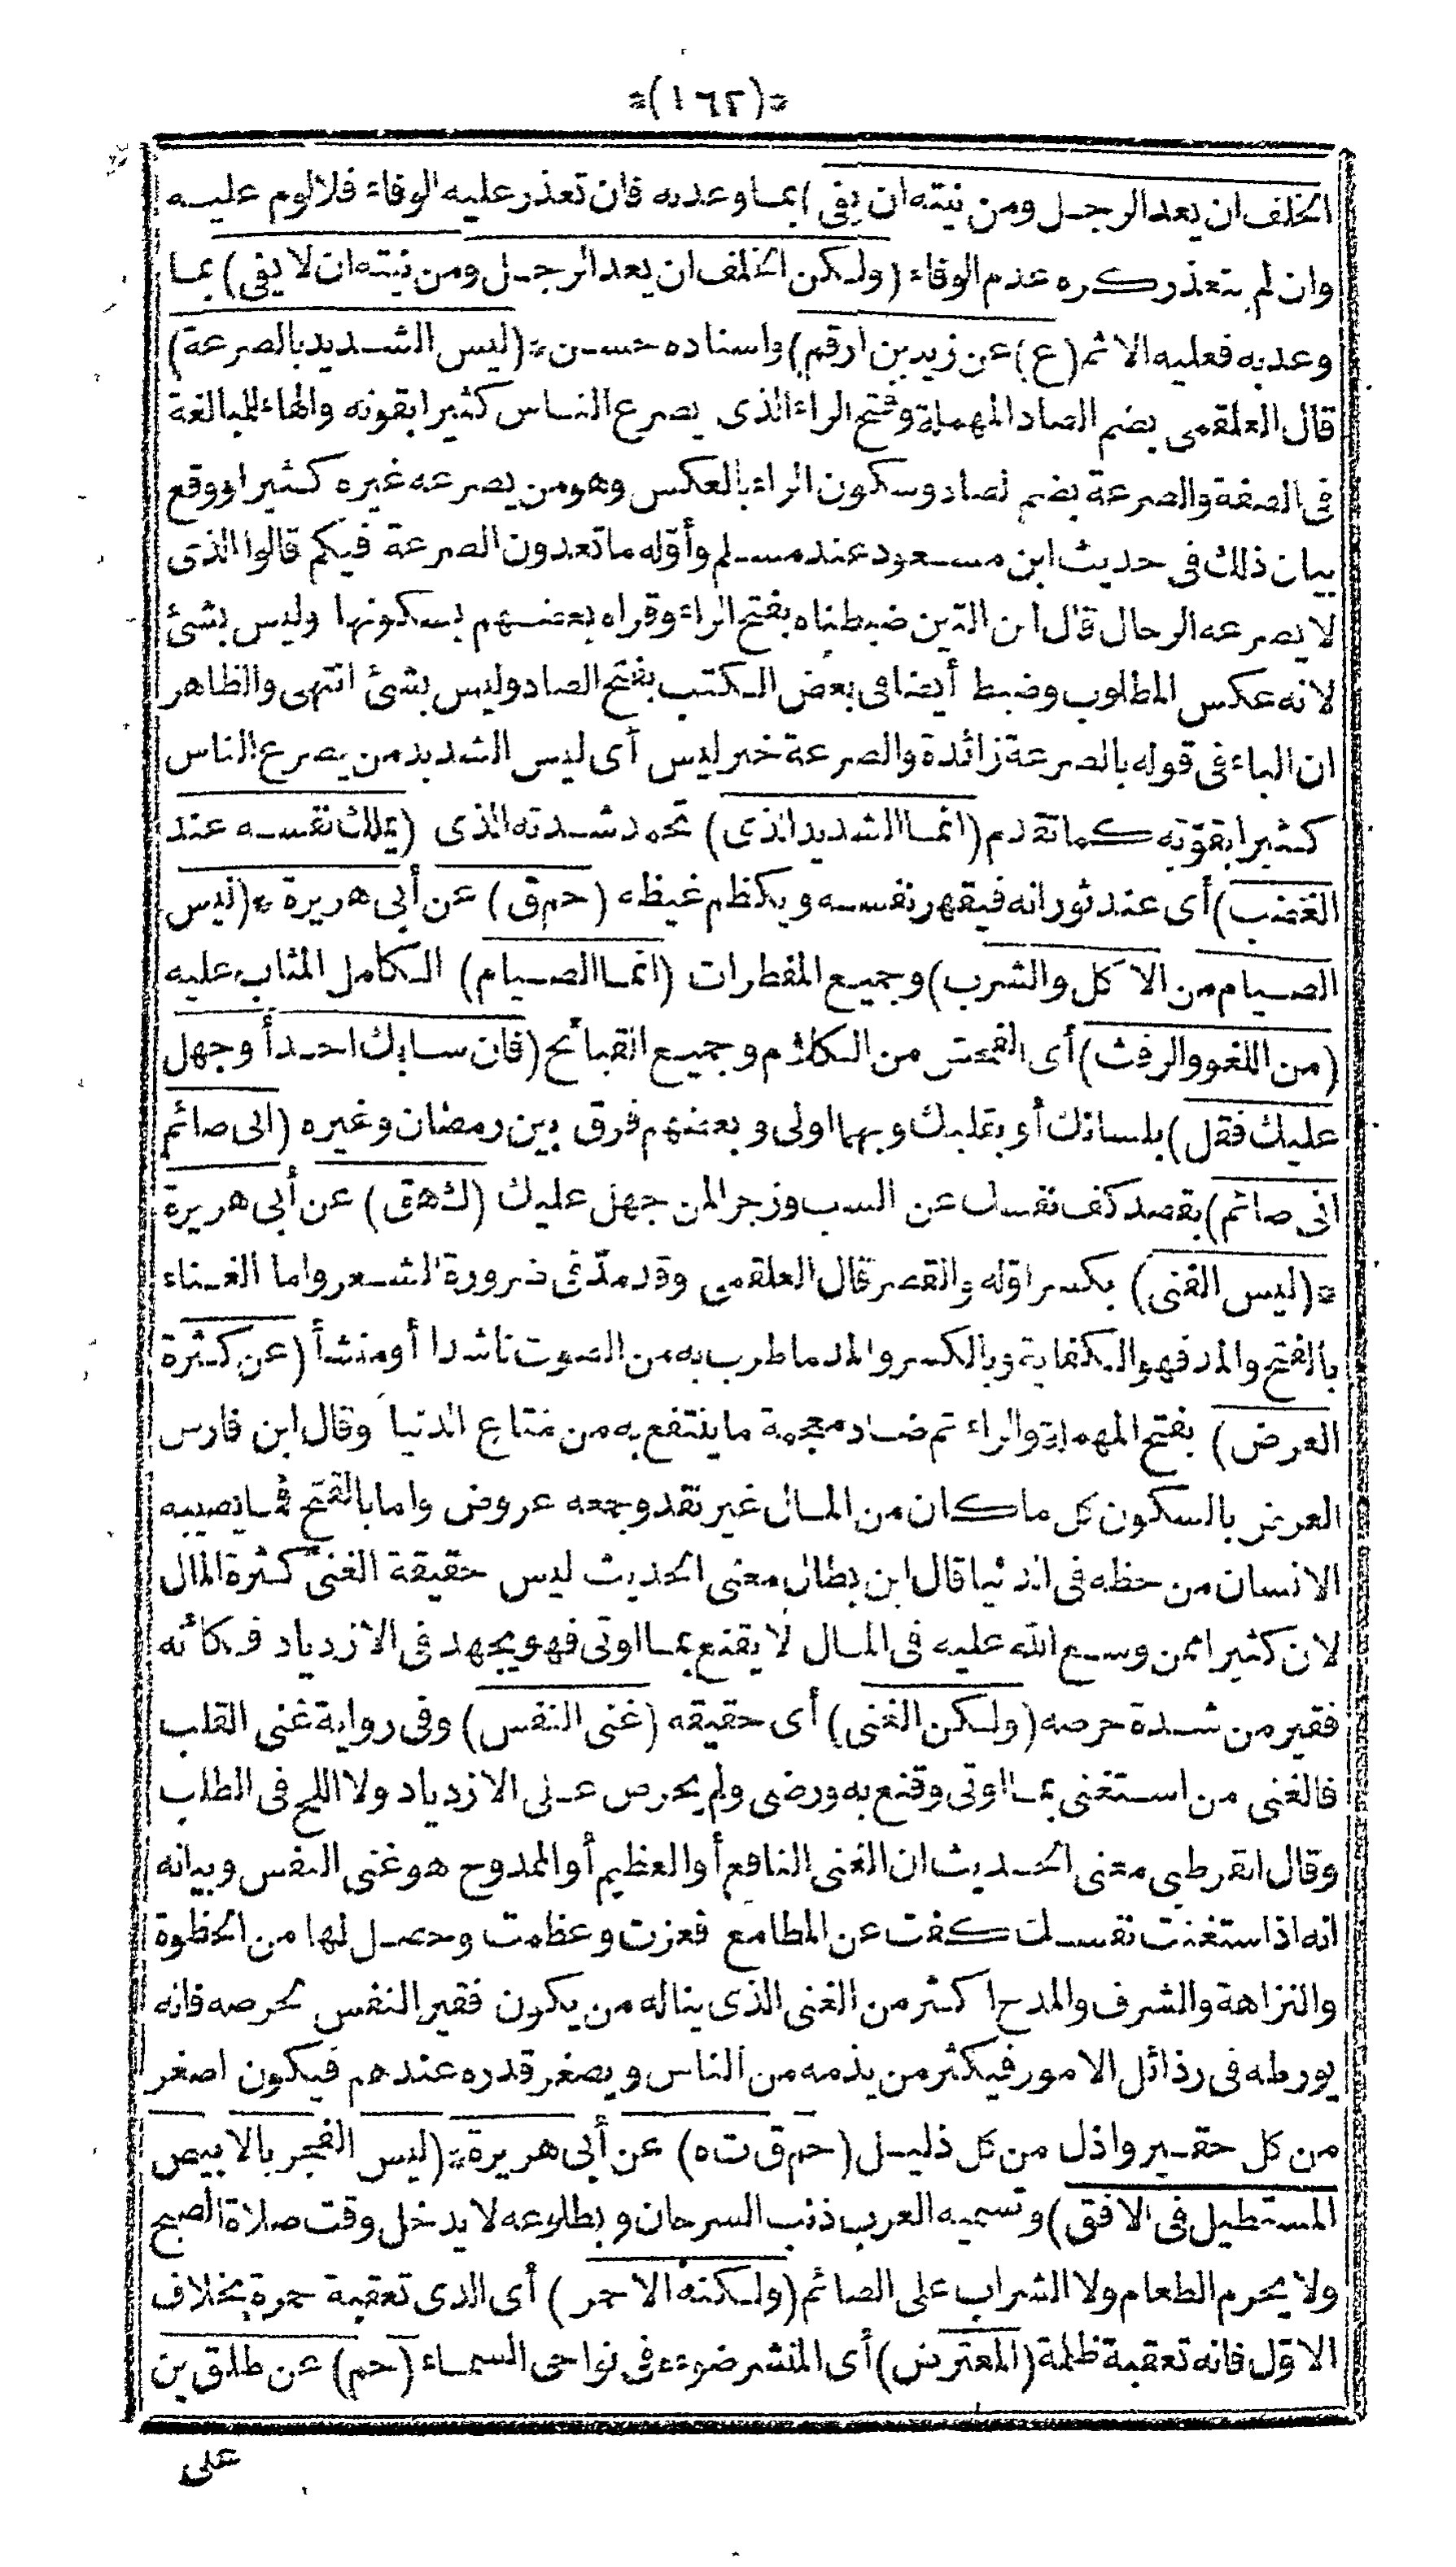 *(١٦٢)*
الخلف ان يعد الرجل ومن نيته ان يفى) بما وعد به فان تعذر عليه الوفاء فلا لوم عليه
وان لم يتعذر كره عدم الوفاء (ولكن الخلف ان يعد الرجل ومن نيته ان لا يفى) بما
وعد به فعليه الاثم (ع) عن زيد بن ارقم) واسناده حسن *(ليس الشديد بالصرعة)
قال العلقمى بضم الصاد المهملة وفتح الراء الذى يصرع الناس كثيرا بقوته والهاء للمبالغة
فى الصفة والصرعة بضم لصاد وسكون الراء بالعكس وهو من يصرعه غيره كثيرا ووقع
بيان ذلك فى حديث ابن مسعود عند مسلم وأوّله ما تعدون الصرعة فيكم قالوا الذى
لا يصرعه الرجال قال ابن التين ضبطناه بفتح الراء وقراه بعضهم بسكونها وليس بشئ
لانه عكس المطلوب وضبط أيضا فى بعض الكتب بفتح الصاد وليس بشئ انتهى والظاهر
ان الباء فى قوله بالصرعة زائدة والصرعة خبر ليس أى ليس الشديد من يصرع الناس
كثيرا بقوّته كما تقدم (انما الشديد الذى) تحمد شدته الذى (يملك نفسه عند
الغضب) أى عند ثورانه فيقهر نفسه ويكظم غيظه (حم ق) عن أبى هريرة *(ليس
الصيام من الاكل والشرب) وجميع المفطرات (انما الصيام) الكامل المثاب عليه
(من اللغو والرفث) أى الفحش من الكلام وجميع القبائح (فان سابك احد أو جهل
عليك فقل) بلسانك أو بقلبك وبهما اولى وبعضهم فرق بين رمضان وغيره (انى صائم
انى صائم) بقصد كف نفسك عن السب وزجر المن جهل عليك (ك هق) عن أبى هريرة
*(ليس الغنى) بكسر اوّله والقصر قال العلقمى وقد مدّ فى ضرورة الشعر واما الغناء
بالفتح والمد فهو الكفاية وبالكسر والمد ما طرب به من الصوت ناشدا أو منشأ (عن كثرة
العرض) بفتح المهملة والراء ثم ضاد معجمة ما ينتفع به من متاع الدنيا وقال ابن فارس
العرض بالسكون كل ما كان من المال غير نقد وجمعه عروض واما بالفتح فما يصيبه
الانسان من حظه فى الدنيا قال ابن بطال معنى الحديث ليس حقيقة الغنى كثرة المال
لان كثيرا ممن وسع الله عليه فى المال لا يقنع بما اوتى فهو يجهد فى الازدياد فكأنه
فقير من شدة حرصه (ولكن الغنى) أى حقيقه (غنى النفس) وفى رواية غنى القلب
فالغنى من استغنى بما اوتى وقنع به ورضى ولم يحرص على الازدياد ولا اللح فى الطلب
وقال القرطبى معنى الحديث ان الغنى النافع أو العظيم أو الممدوح هو غنى النفس وبيانه
انه اذا ستغنت نفسك كفت عن المطامع فعزت وعظمت وحصل لها من الحظوة
والنزاهة والشرف والمدح اكثر من الغنى الذى يناله من يكون فقير النفس لحرصه فانه
يورطه فى رذائل الامور فيكثر من يذمه من الناس ويصغر قدره عندهم فيكون اصغر
من كل حقير واذل من كل ذليل (حم ق ت ه) عن أبى هريرة *(ليس الفجر بالابيض
المستطيل فى الافق) وتسميه العرب ذنب السرحان وبطلوعه لا يدخل وقت صلاة الصبح
ولا يحرم الطعام ولا الشراب على الصائم (ولكنه الاحمر) أى الذى تعقبة حمرة بخلاف
الاوّل فانه تعقبة ظلمة (المعترض) أى المنشر ضوءه فى نواحى السماء (حم) عن طلق بن
على